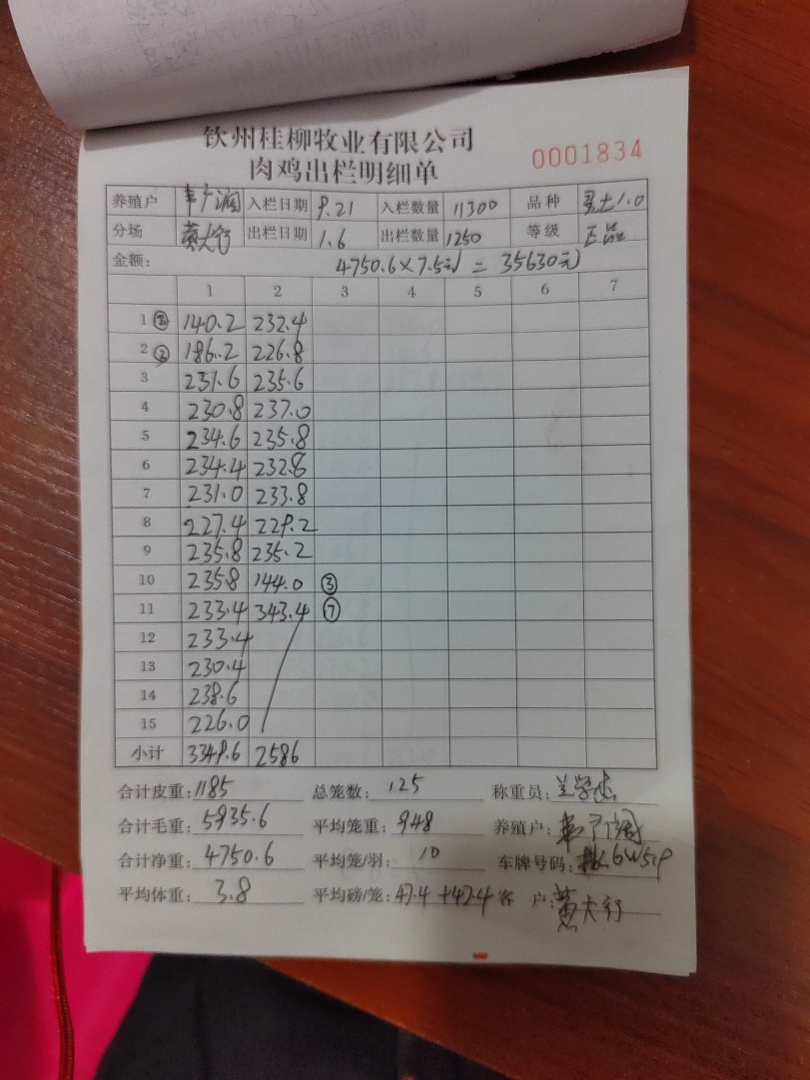 钦州桂柳牧业有限公司
肉鸡出栏明细单 0001834
养殖户 入栏日期 9.21 入栏数量 11300 品种 土1.0
分场 黄大行 出栏日期 1.6 出栏数量 1250 等级 正品
金额: 4750.6×7.5元/ = 35630元
1 2 3 4 5 6 7
1 140.2 232.4
2 ② 186.2 226.8
3 231.6 235.6
4 230.8 237.0
5 234.6 235.8
6 234.4 232.8
7 231.0 233.8
8 227.4 229.2
9 235.8 235.2
10 235.8 144.0 ③
11 233.4 343.4 ⑦
12 233.4
13 230.4
14 238.6
15 226.0
小计 3349.6 2586
合计皮重: 1185 总笼数: 125 称重员:
合计毛重: 5935.6 平均笼重: 948 养殖户:
合计净重: 4750.6 平均笼/羽: 10 车牌号码:
平均体重: 3.8 平均磅/笼: 47.4+47.4 客 户: 黄大行